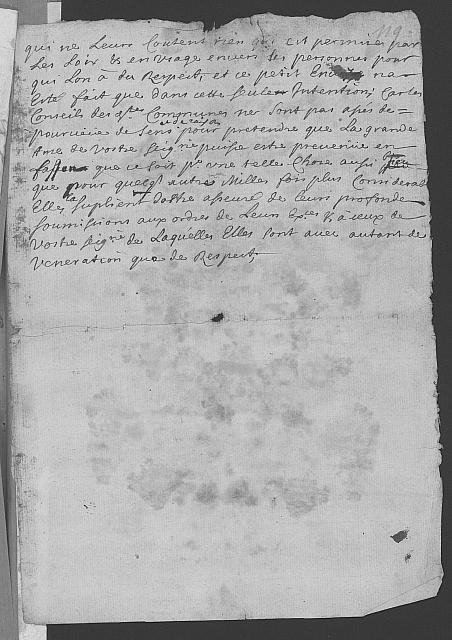 119
qui ne Leurs Coutent rien qui est permises par
Les Loix & en Usage envers Les personnes pour
qui Lon a du Respect, et ce petit na
Esté fait que dans cette seule Intention, Car les
Conseils des d'tes Communes ne sont pas assés de=
pourveüe de Sens pour pretendre que La grande
Ame de Vostre Seig.rie puisse estre prevenüe en
que ce soit p.r une telle Chose aussi
que pour quelq autre Mille fois plus Considerab
Elles Suplient dattre asseuré de Leurs profonde
soumissions aux ordres de Leurs & a ceux de
Vostre Seig.rie de Laquelles Elles sont avec autant de
Veneration que de Respect,